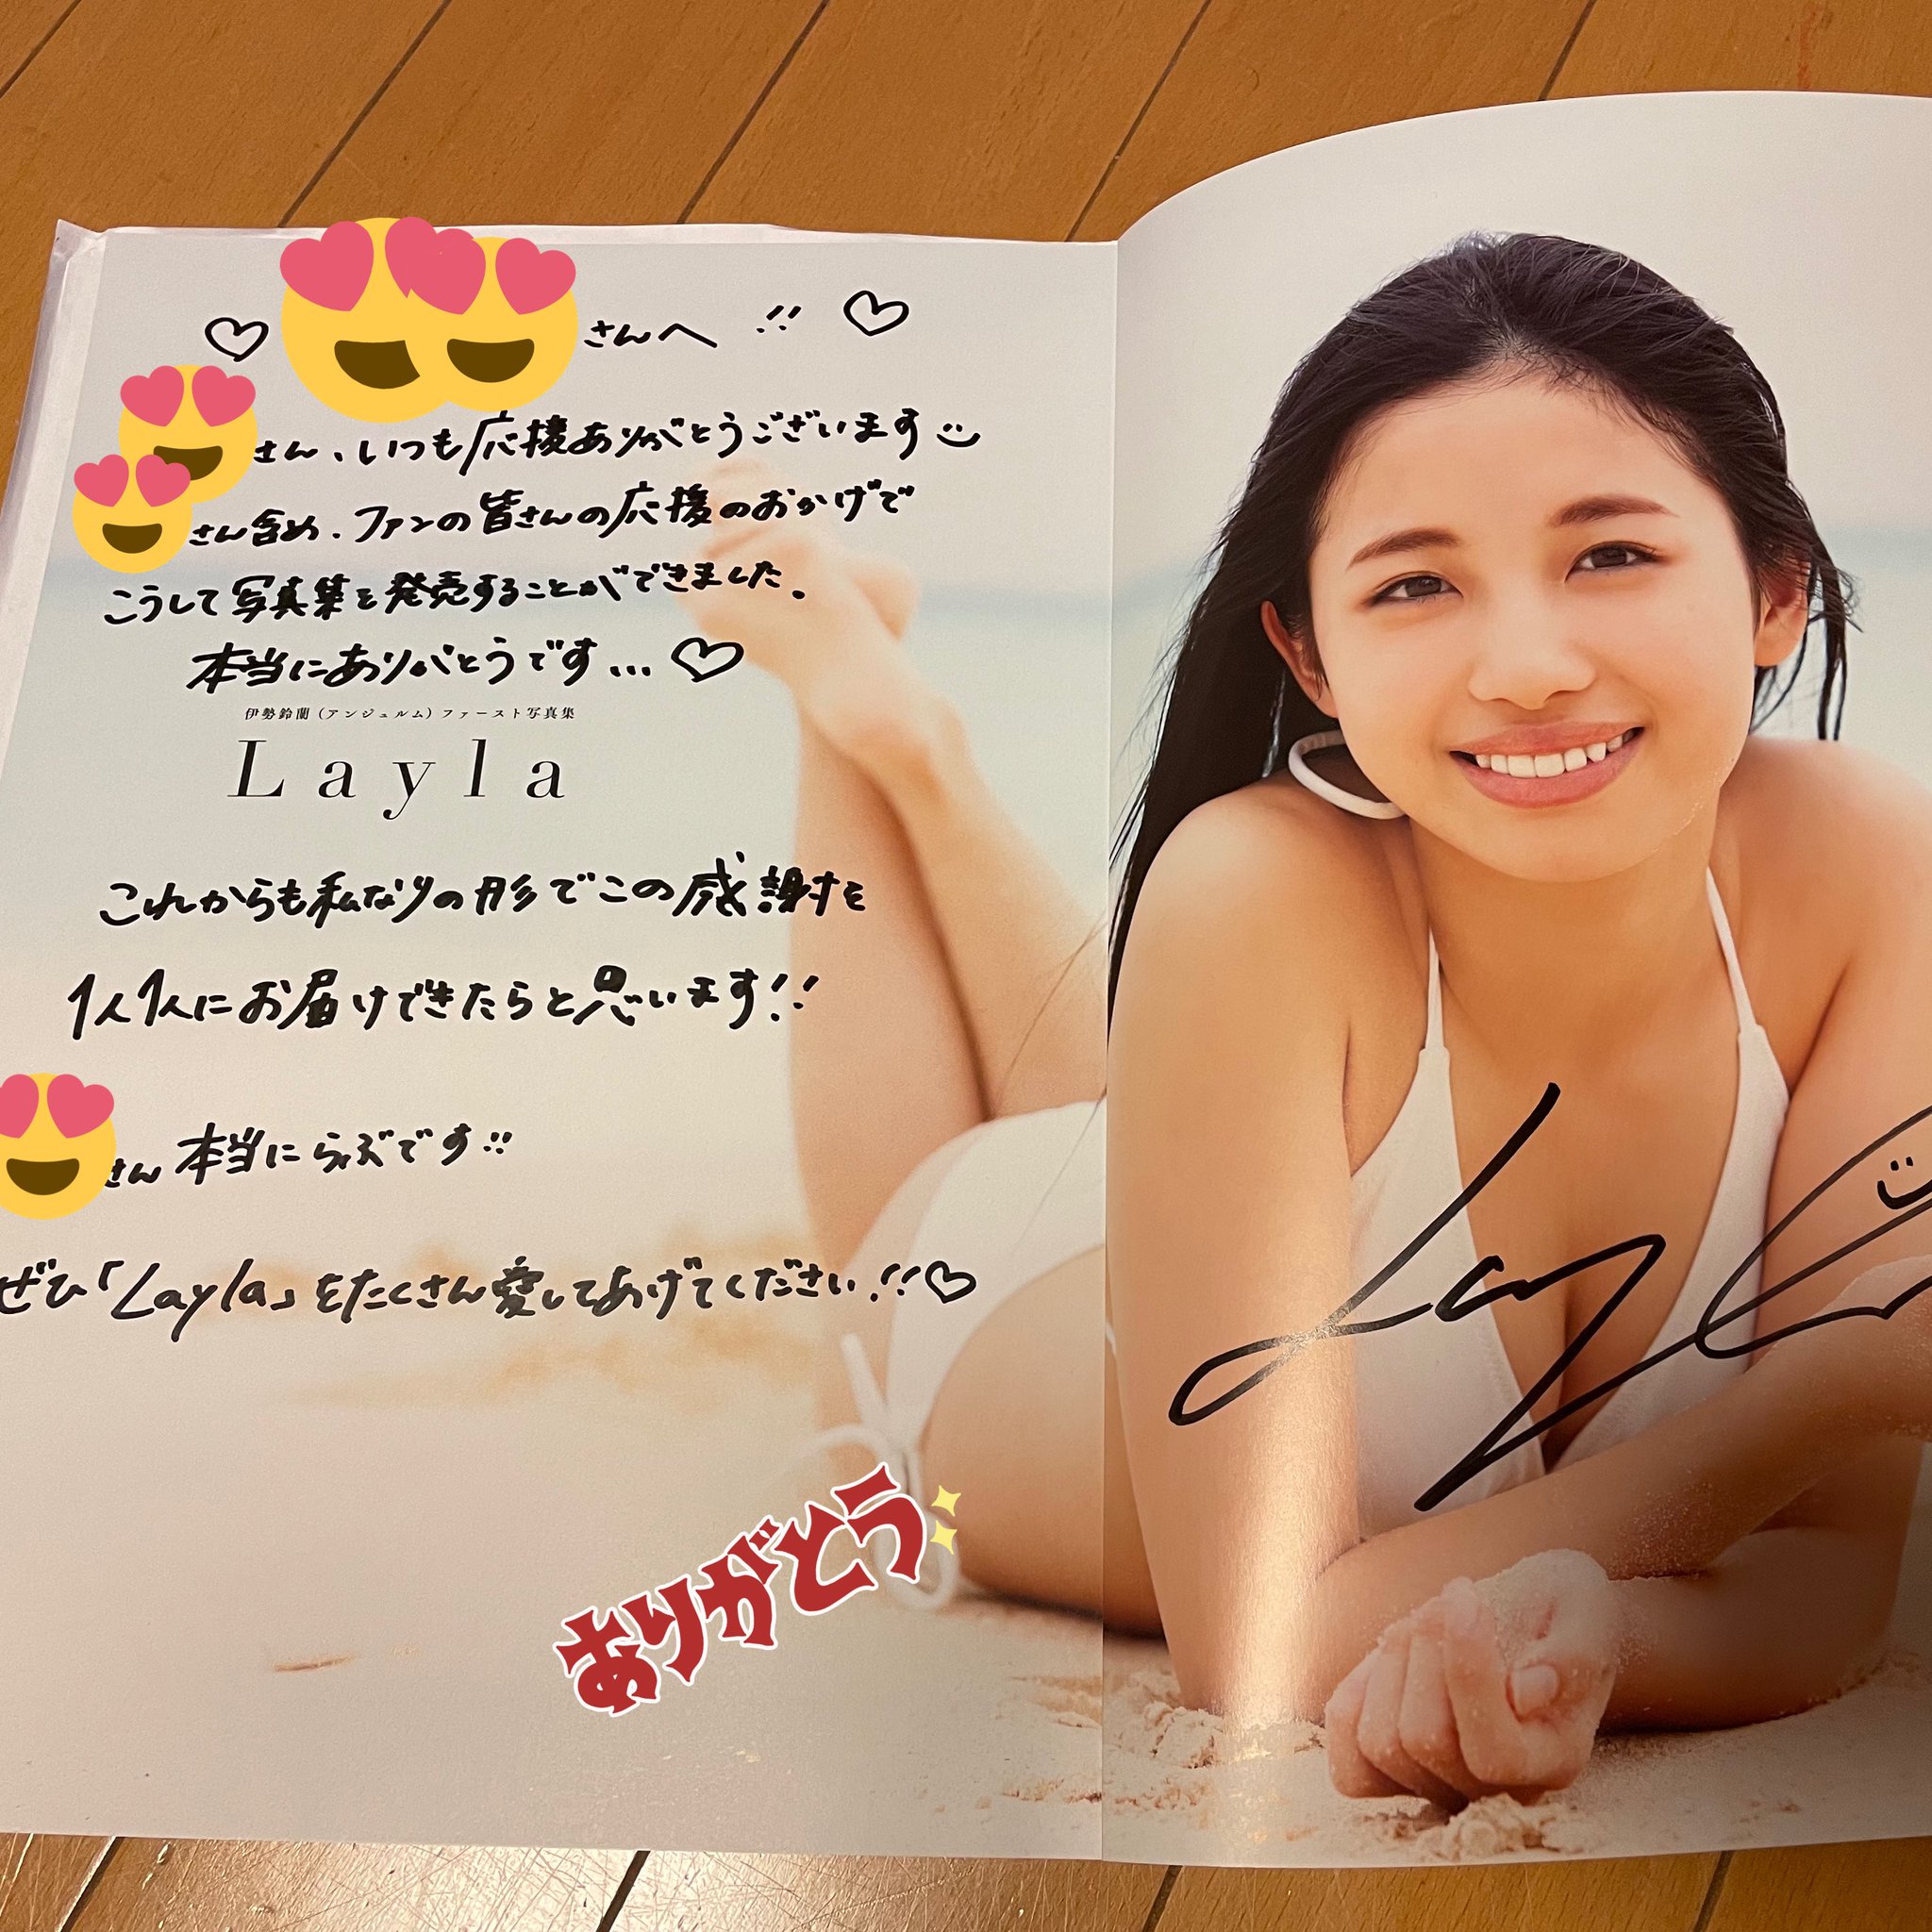 さんへ !!
さん、いつも応援ありがとうございます
さん含め、ファンの皆さんの応援のおかげで
こうして写真集を発売することができました。
本当にありがとうです…♡
伊勢鈴蘭（アンジュルム）ファースト写真集
Layla
これからも私なりの形でこの感謝を
1人1人にお届けできたらと思います!!
さん本当にらぶです!!
ぜひ「Layla」をたくさん愛してあげてください!!♡
ありがとう